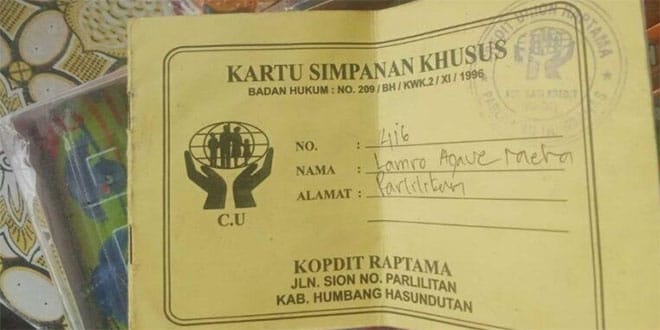 KARTU SIMPANAN KHUSUS
BADAN HUKUM : NO. 209 / BH / KWK.2 / XI / 1996
NO. : 416
NAMA : Lamro Agave
ALAMAT : Parlilitan
C.U
KOPDIT RAPTAMA
JLN. SION NO. PARLILITAN
KAB. HUMBANG HASUNDUTAN
RAPTAMA